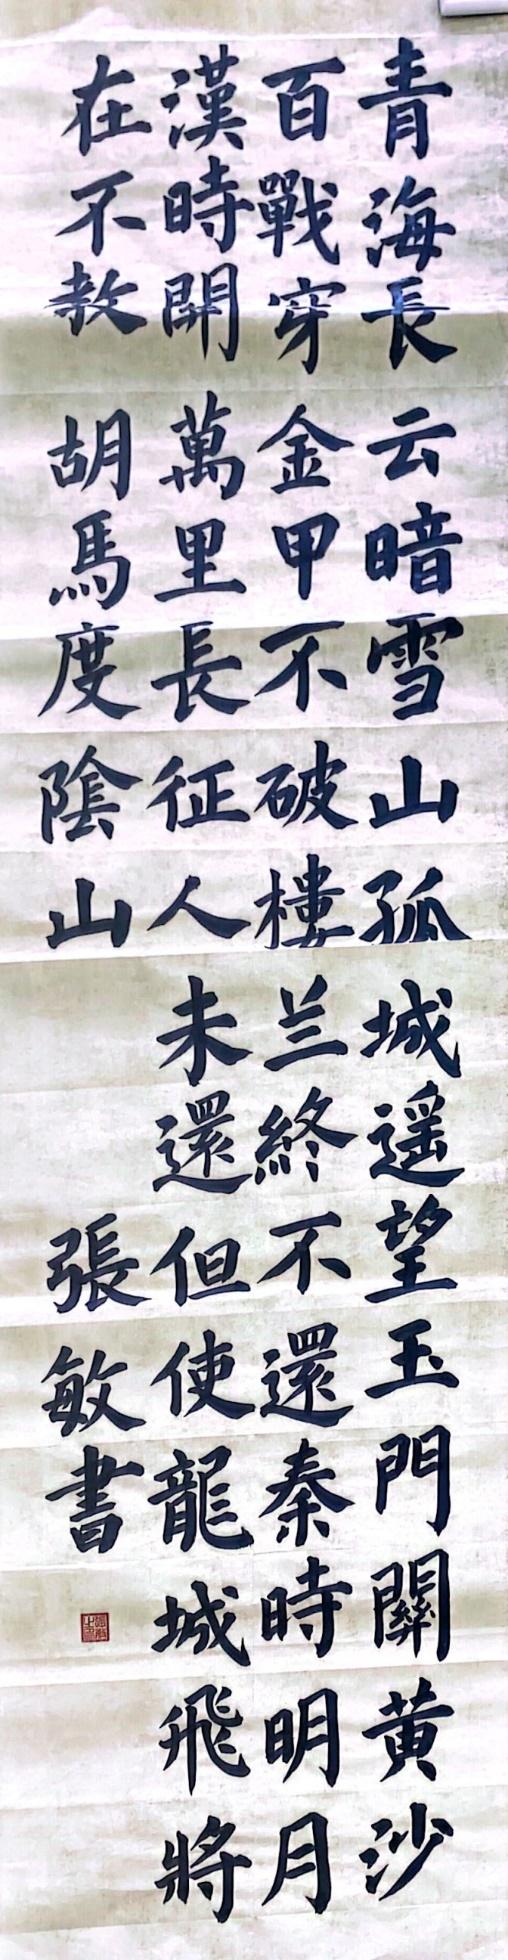 青海長云暗雪山孤城遥望玉門關黄沙
百戰穿金甲不破樓兰終不還秦時明月
漢時開萬里長征人未還但使龍城飛將
在不教胡馬度陰山
張敏書